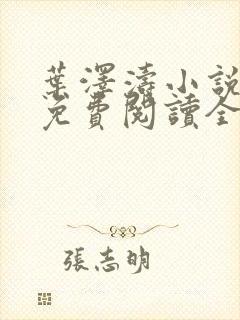 葉澤濤小說
免費閱讀全
張志明